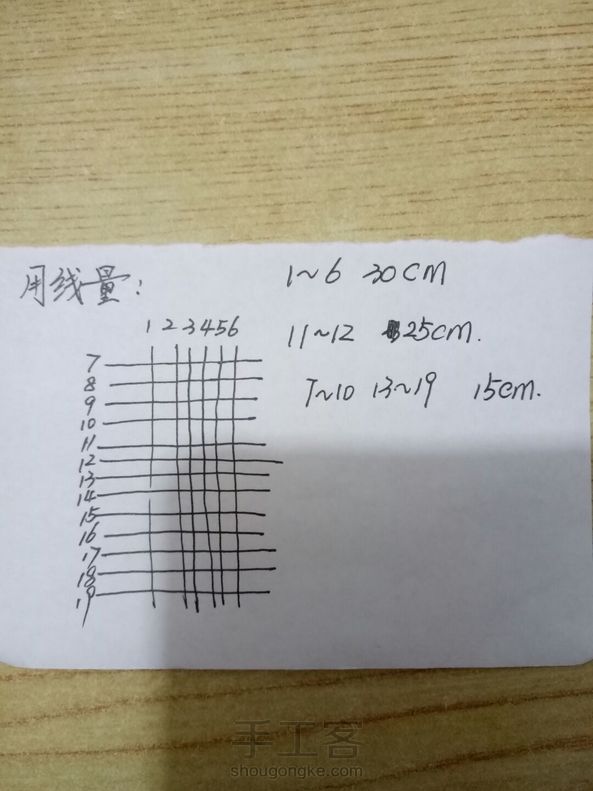 用线量：
1~6 30CM
11~12 25cm.
7~10 13~19 15cm.
1 2 3 4 5 6
7
8
9
10
11
12
13
14
15
16
17
18
19
手工客
shougongke.com